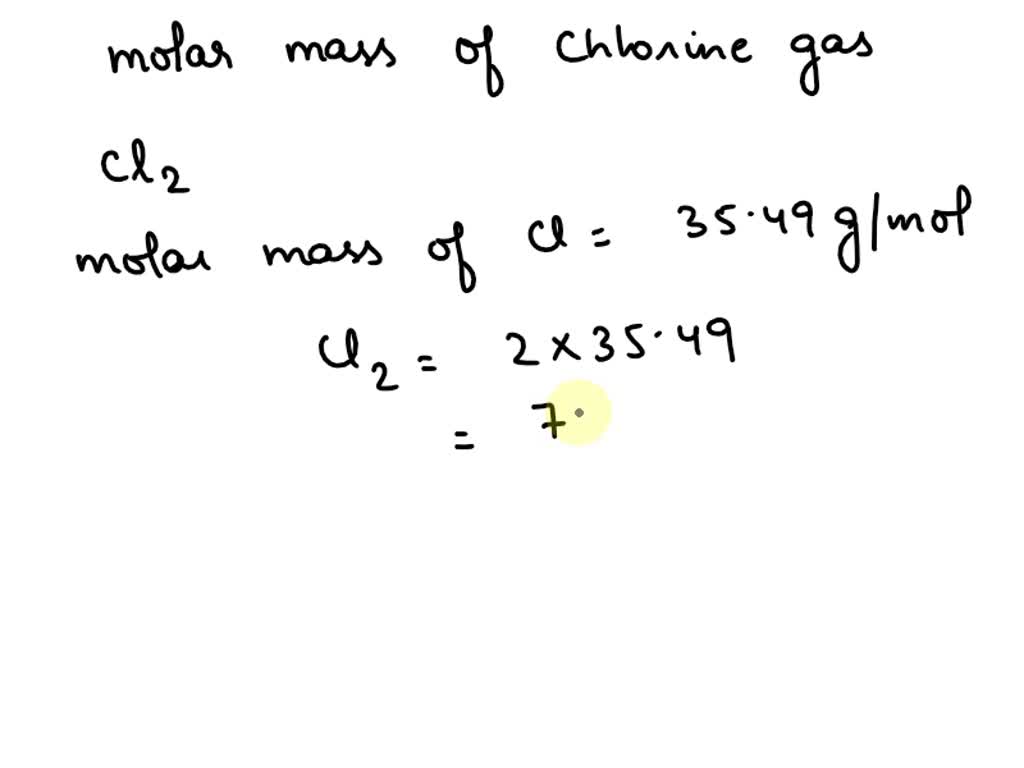 molar mass of Chlorine gas
Cl2
molar mass of Cl = 35.49 g/mol
Cl2 = 2 × 35.49
= 7